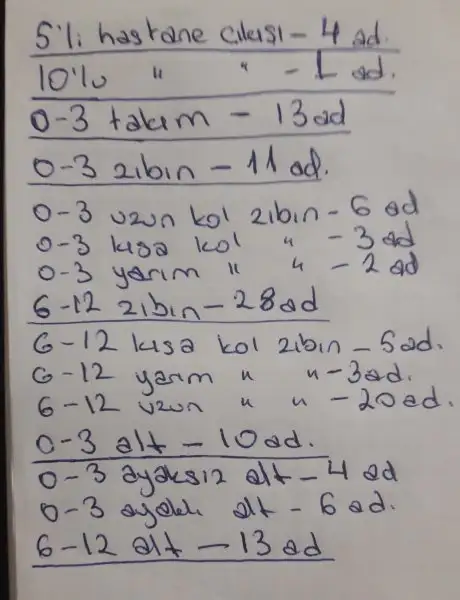 5'li hastane çıkışı - 4 ad.
10'lu " " - 1 ad.
0-3 takım - 13 ad
0-3 zıbın - 11 ad.
0-3 uzun kol zıbın - 6 ad
0-3 kısa kol " - 3 ad
0-3 yarım " " - 2 ad
6-12 zıbın - 28 ad
6-12 kısa kol zıbın - 5 ad.
6-12 yarım " " - 3 ad.
6-12 uzun " " - 20 ad.
0-3 alt - 10 ad.
0-3 ayaksız alt - 4 ad
0-3 ayaklı alt - 6 ad.
6-12 alt - 13 ad